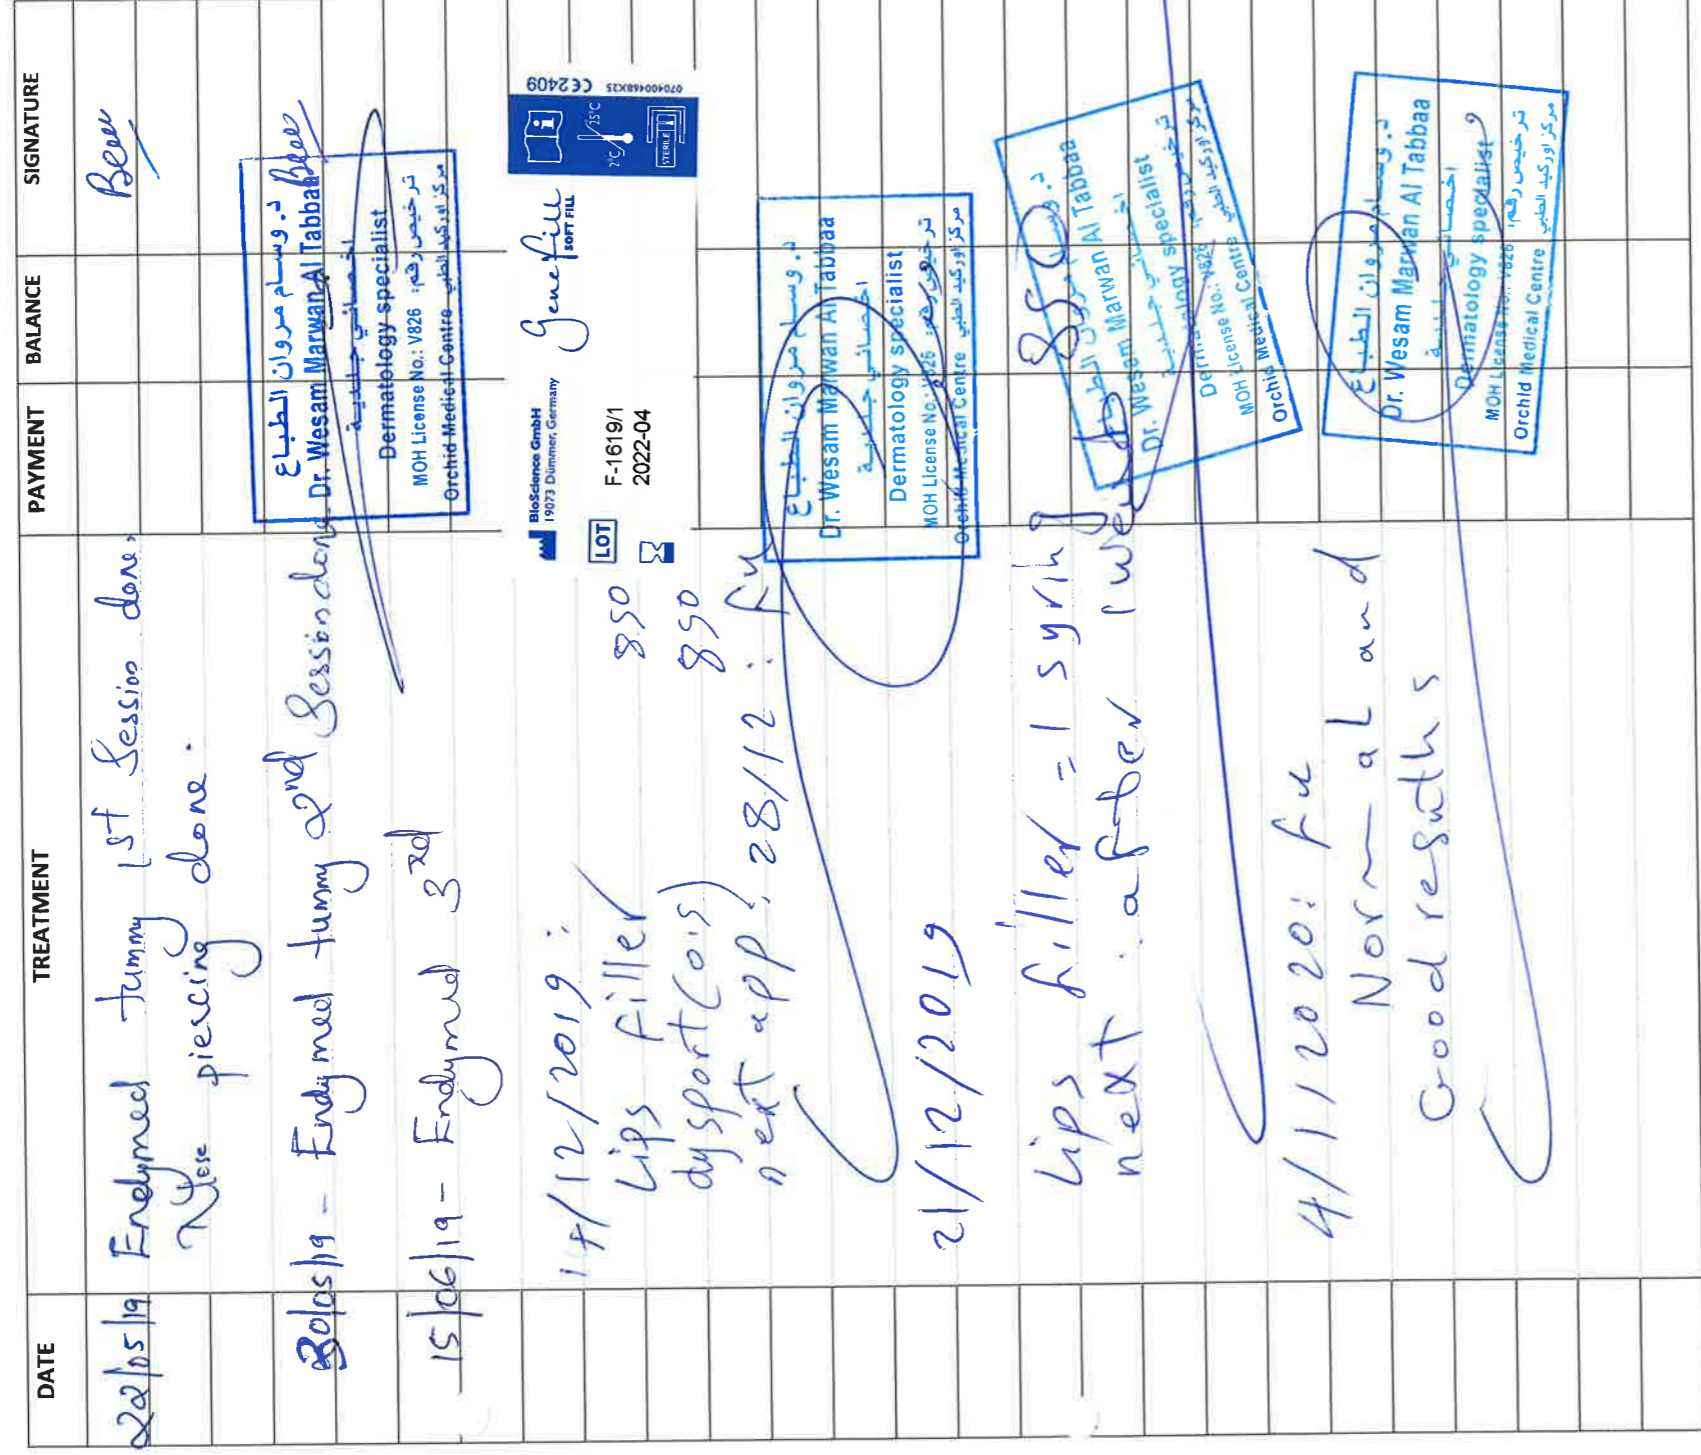 DATE TREATMENT PAYMENT BALANCE SIGNATURE
22/05/19 Endymed tummy 1st Session done,
Nose piercing done.
30/05/19 - Endymed tummy 2nd Session done.
د. وسام مروان الطباع
Dr. Wesam Marwan Al Tabbaa
اخصائي جلدية
Dermatology specialist
MOH License No.: V826 ترخيص رقم:
Orchid Medical Centre مركز اوركيد الطبي
15/06/19 - Endymed 3rd
BioScience GmbH
19073 Dümmer, Germany
Genefill
SOFT FILL
LOT F-1619/1
2022-04
i
2°C 25°C
STERILE
CE 2409
070400468X25
14/12/2019:
Lips filler 850
dysport (ois) 850
next app: 28/12: fu
د. وسام مروان الطباع
Dr. Wesam Marwan Al Tabbaa
اخصائي جلدية
Dermatology specialist
MOH License No.: V826 ترخيص رقم:
Orchid Medical Centre مركز اوركيد الطبي
21/12/2019
Lips filler = 1 syring 850
next: after 1 week
د. وسام مروان الطباع
Dr. Wesam Marwan Al Tabbaa
اخصائي جلدية
Dermatology specialist
MOH License No.: V826 ترخيص رقم:
Orchid Medical Centre مركز اوركيد الطبي
4/1/2020: fu
Normal and
Good resulths
د. وسام مروان الطباع
Dr. Wesam Marwan Al Tabbaa
اخصائي جلدية
Dermatology specialist
MOH License No.: V826 ترخيص رقم:
Orchid Medical Centre مركز اوركيد الطبي